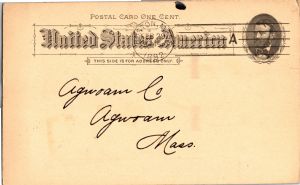 POSTAL CARD ONE CENT.
United States America
THIS SIDE IS FOR ADDRESS ONLY.
A
Agwoam Co
Agwoam
Mass.